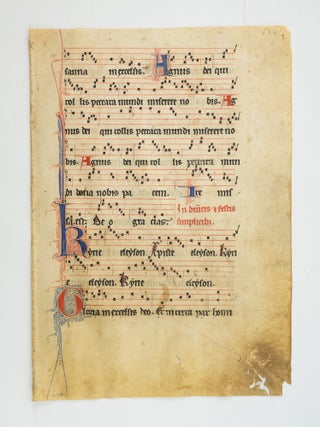 sanna in excelsis. Agnus dei qui
tol lis peccata mundi miserere no bis. Ag
nus dei qui tollis peccata mundi miserere no
bis. Agnus dei qui tol lis peccata mun
di dona nobis pa cem. Ite mis
sa est. De o gra cias.
simplicibus
Kyrie eleyson. Xpiste eleyson. Kyri
e eleyson. Kyrie eleyson.
Gloria in excelsis deo. Et in terra pax homi